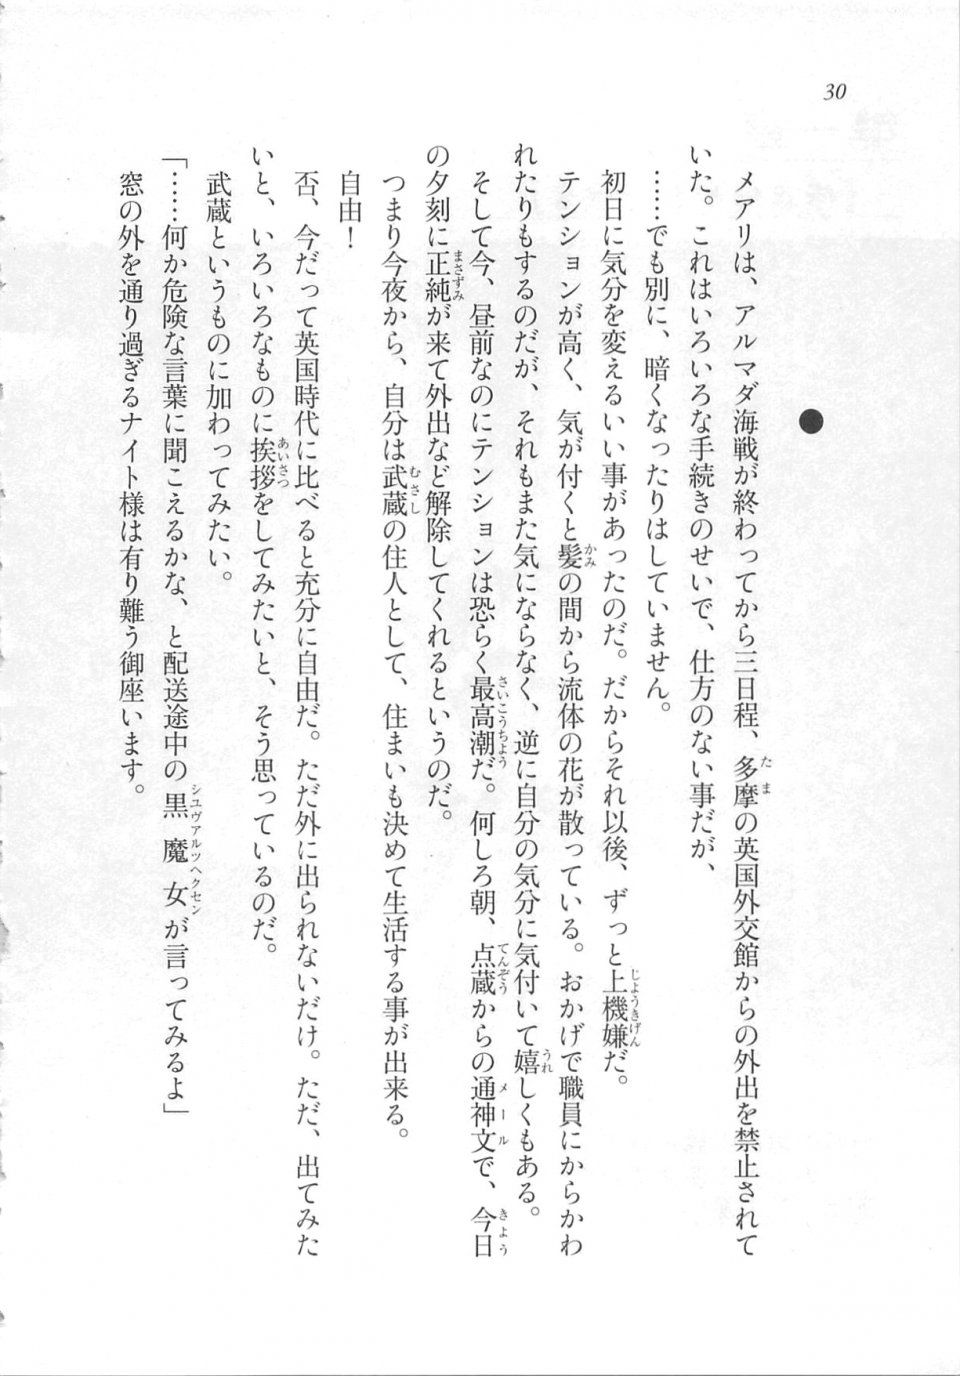 30
●
メアリは、アルマダ海戦が終わってから三日程、多摩の英国外交館からの外出を禁止されて
いた。これはいろいろな手続きのせいで、仕方のない事だが、
……でも別に、暗くなったりはしていません。
初日に気分を変えるいい事があったのだ。だからそれ以後、ずっと上機嫌だ。
テンションが高く、気が付くと髪の間から流体の花が散っている。おかげで職員にからかわ
れたりもするのだが、それもまた気にならなく、逆に自分の気分に気付いて嬉しくもある。
そして今、昼前なのにテンションは恐らく最高潮だ。何しろ朝、点蔵からの通神文で、今日
の夕刻に正純が来て外出など解除してくれるというのだ。
つまり今夜から、自分は武蔵の住人として、住まいも決めて生活する事が出来る。
自由！
否、今だって英国時代に比べると充分に自由だ。ただ外に出られないだけ。ただ、出てみた
いと、いろいろなものに挨拶をしてみたいと、そう思っているのだ。
武蔵というものに加わってみたい。
「……何か危険な言葉に聞こえるかな、と配送途中の黒魔女が言ってみるよ」
窓の外を通り過ぎるナイト様は有り難う御座います。